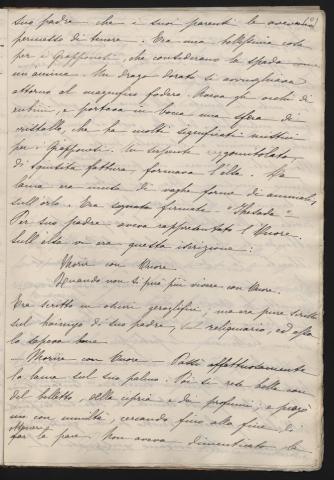 suo padre che i suoi parenti le avevano
permesso di tenere. Era una bellissima cosa
per i Giapponesi, che considerano la spada come
un'anima. Un drago dorato si avvinghiava
attorno al magnifico fodero. Aveva gli occhi di
rubini, e portava in bocca una sfera di
cristallo, che ha molti significati mistici
per i Giapponesi. Un serpente aggomitolato,
di squisita fattura, formava l'elsa. La
lama era incisa di vaghe forme di animali,
sull'orlo. Era segnata firmata
Per suo padre aveva rappresentato l'Onore.
Sull'elsa vi era questa iscrizione:
Morire con Onore
Quando non si può più vivere con Onore.
Era scritto in oscuri geroglifici; ma era pure scritto
sul kaimyo di suo padre, sul reliquiario, ed essa
lo sapeva bene
— Morire con Onore — Passò affettuosamente
la lama sul suo palmo. Poi si rese bella con
del belletto, della cipria e dei profumi; e pregò
con umiltà, cercando fino alla fine di
far la pace. Non aveva dimenticato le